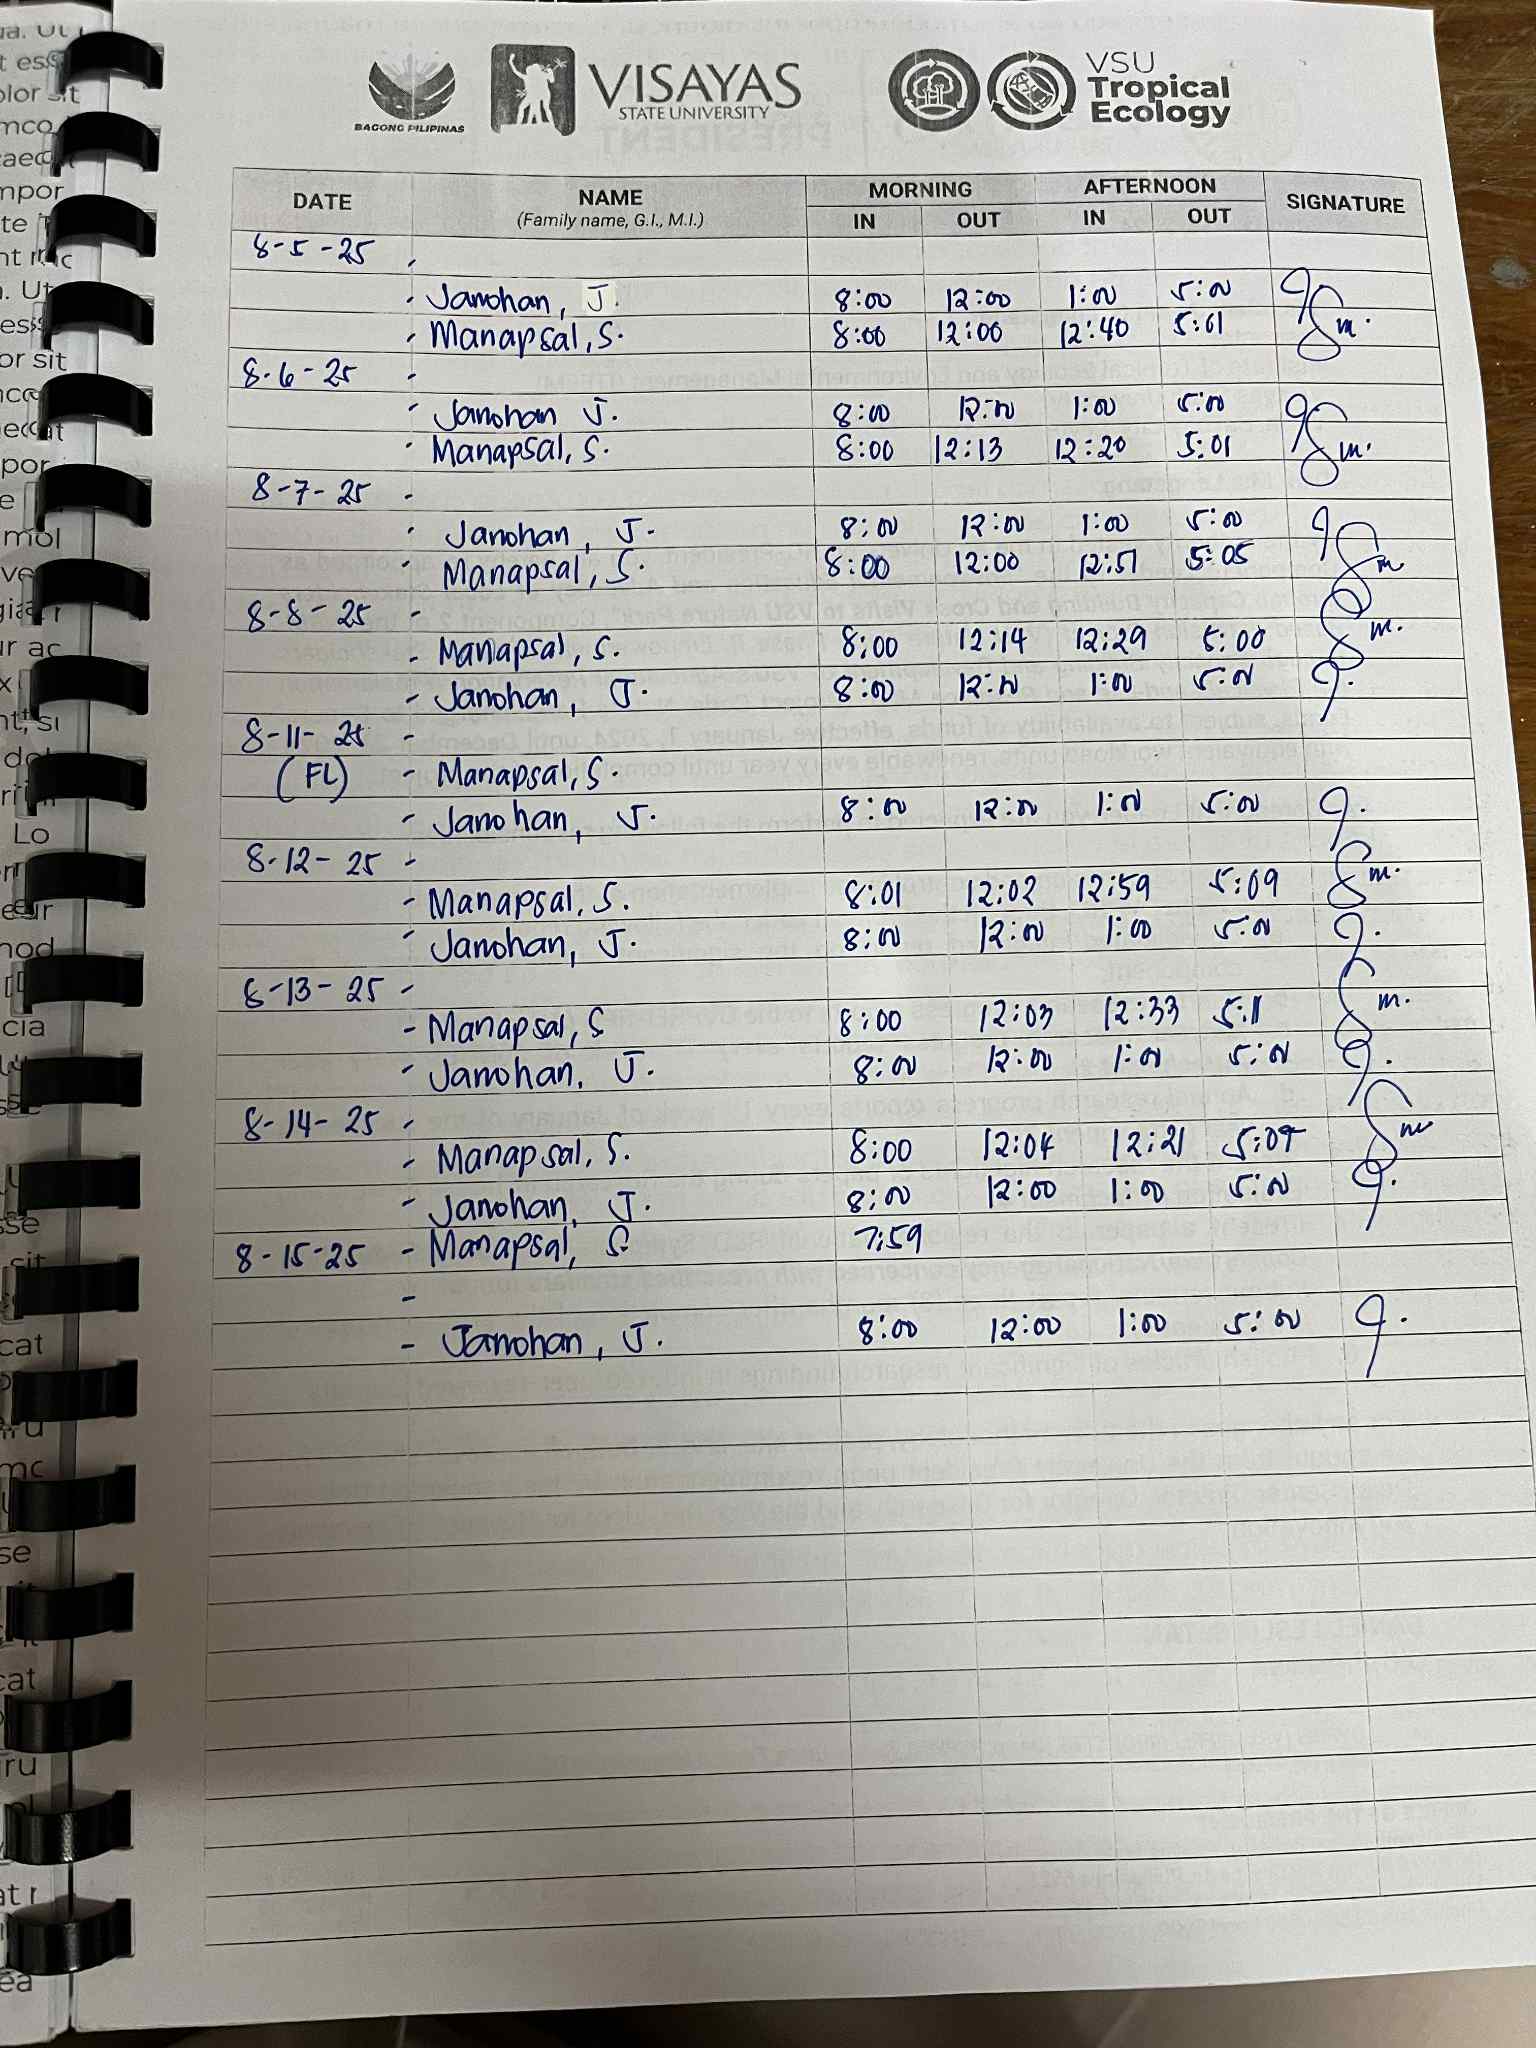 BAGONG PILIPINAS
VISAYAS
STATE UNIVERSITY
VSU
Tropical
Ecology
DATE NAME MORNING AFTERNOON SIGNATURE
(Family name, G.I., M.I.) IN OUT IN OUT
8-5-25
- Janohan, J. 8:00 12:00 1:00 5:00
- Manapsal, S. 8:00 12:00 12:40 5:01
8-6-25 -
- Janohan J. 8:00 12:00 1:00 5:00
- Manapsal, S. 8:00 12:13 12:20 5:01
8-7-25 -
- Janohan, J. 8:00 12:00 1:00 5:00
- Manapsal, S. 8:00 12:00 12:51 5:05
8-8-25
- Manapsal, S. 8:00 12:14 12:29 5:00
- Janohan, J. 8:00 12:00 1:00 5:00
8-11-25 -
(FL) - Manapsal, S.
- Janohan, J. 8:00 12:00 1:00 5:00
8-12-25 -
- Manapsal, S. 8:01 12:02 12:59 5:09
- Janohan, J. 8:00 12:00 1:00 5:00
8-13-25 -
- Manapsal, S 8:00 12:03 12:33 5:11
- Janohan, J. 8:00 12:00 1:00 5:00
8-14-25 -
- Manapsal, S. 8:00 12:04 12:21 5:07
- Janohan, J. 8:00 12:00 1:00 5:00
8-15-25 - Manapsal, S. 7:59
-
- Janohan, J. 8:00 12:00 1:00 5:00